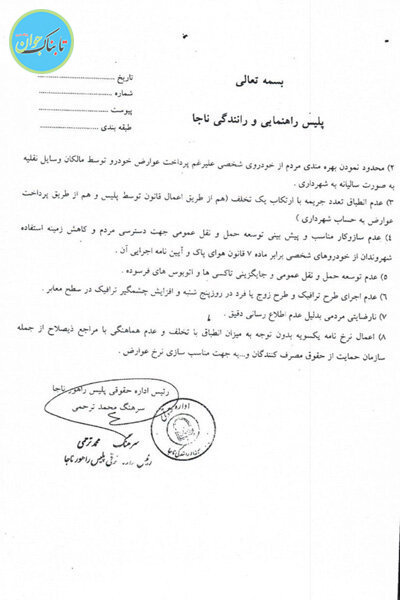 تابناک جوان
بسمه تعالی
پلیس راهنمایی و رانندگی ناجا
تاریخ
شماره
پیوست
طبقه بندی
۲) محدود نمودن بهره مندی مردم از خودروی شخصی علیرغم پرداخت عوارض خودرو توسط مالکان وسایل نقلیه
به صورت سالیانه به شهرداری .
۳) عدم انطباق تعدد جریمه با ارتکاب یک تخلف (هم از طریق اعمال قانون توسط پلیس و هم از طریق پرداخت
عوارض به حساب شهرداری )
۴) عدم سازوکار مناسب و پیش بینی توسعه حمل و نقل عمومی جهت دسترسی مردم و کاهش زمینه استفاده
شهروندان از خودروهای شخصی برابر ماده ۷ قانون هوای پاک و آیین نامه اجرایی آن .
۵) عدم توسعه حمل و نقل عمومی و جایگزینی تاکسی ها و اتوبوس های فرسوده .
۶) عدم اجرای طرح ترافیک و طرح زوج یا فرد در روزپنج شنبه و افزایش چشمگیر ترافیک در سطح معابر .
۷) نارضایتی مردمی بدلیل عدم اطلاع رسانی دقیق .
۸) اعمال نرخ نامه یکسویه بدون توجه به میزان انطباق با تخلف و عدم هماهنگی با مراجع ذیصلاح از جمله
سازمان حمایت از حقوق مصرف کنندگان و...به جهت مناسب سازی نرخ عوارض .
رئیس اداره حقوقی پلیس راهور ناجا
سرهنگ محمد ترحمی
سرهنگ محمد ترحمی
پلیس راهور ناجا